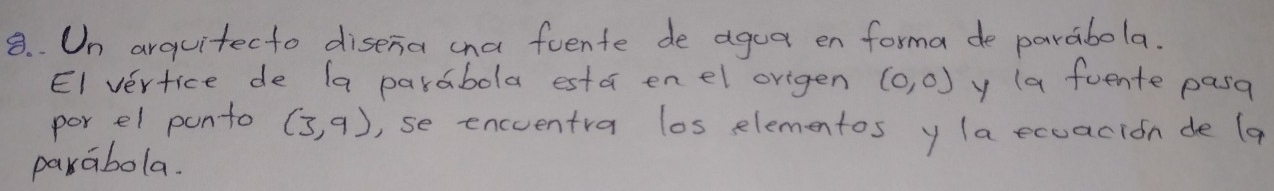 8.. Un arquitecto diseña una fuente de agua en forma de parábola.
El vértice de la parábola está en el origen (0,0) y la fuente pasa
por el punto (3,9), se encuentra los elementos y la ecuación de la
parábola.